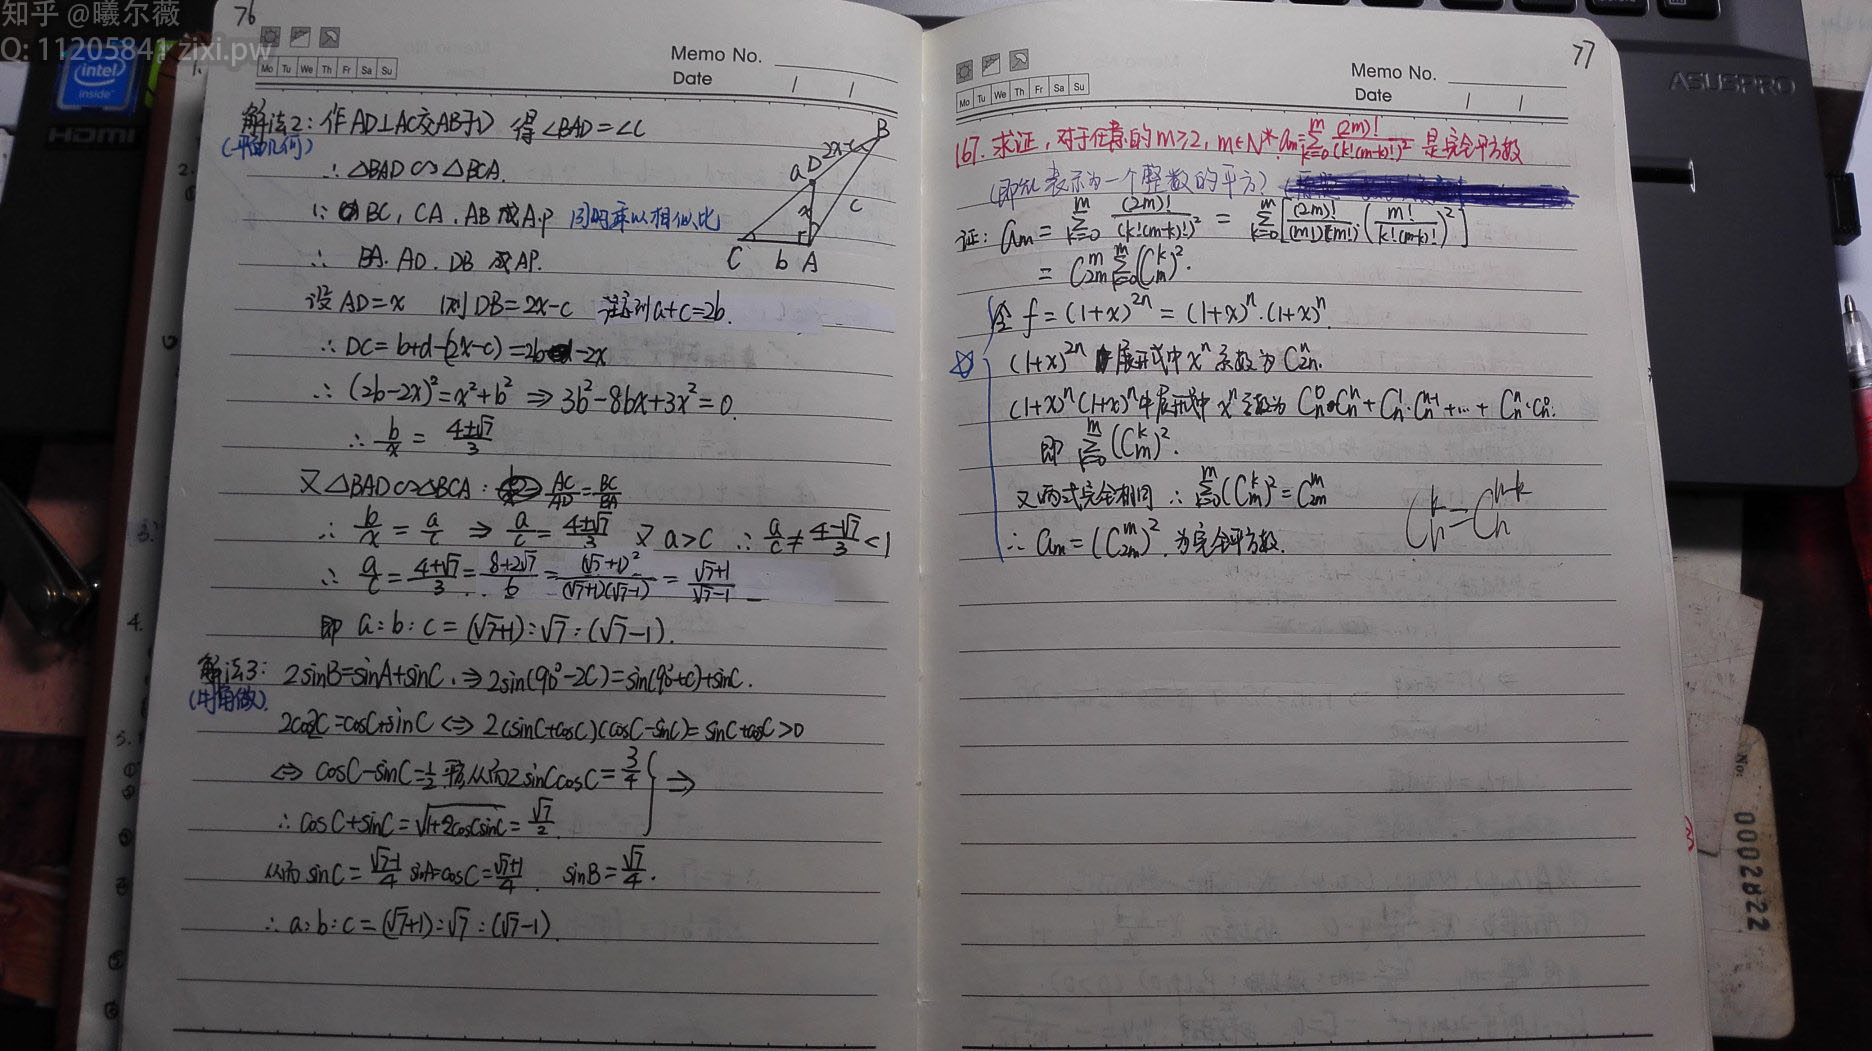 知乎 @曦尔薇
Q: 11205841 zixi.pw
intel inside
HDMI
76
Memo No.
Mo Tu We Th Fr Sa Su
Date / /
解法2: 作AD⊥AC交AB于D 得∠BAD=∠C
(平面几何)
∴ △BAD∽△BCA.
∵ BC, CA, AB成A.P 同时乘以相似比
∴ BA. AD. DB 成AP.
设AD=x 则DB=2x-c 注意到a+c=2b.
∴ DC=b+d-(2x-c)=2b-2x
∴ (2b-2x)²=x²+b² ⇒ 3b²-8bx+3x²=0.
∴ b/x = (4±√7)/3
又△BAD∽△BCA: AC/AD=BC/BA
∴ b/x = a/c ⇒ a/c = (4±√7)/3 又a>c ∴ a/c≠(4-√7)/3<1
∴ a/c=(4+√7)/3=(8+2√7)/6=(√7+1)²/((√7+1)(√7-1))=(√7+1)/(√7-1)
即 a:b:c=(√7+1):√7:(√7-1).
解法3: 2sinB=sinA+sinC. ⇒ 2sin(90°-2C)=sin(90°+C)+sinC.
2cos2C=cosC+sinC ⇔ 2(sinC+cosC)(cosC-sinC)=sinC+cosC>0
⇔ cosC-sinC=1/2 平方 从而2sinCcosC=3/4 } ⇒
∴ cosC+sinC=√(1+2cosCsinC)=√7/2
从而sinC=(√7-1)/4 sinA=cosC=(√7+1)/4. sinB=√7/4.
∴ a:b:c=(√7+1):√7:(√7-1).
B
a D 2x-c
x c
C b A
77
Memo No.
Mo Tu We Th Fr Sa Su
Date / /
167. 求证, 对于任意的m≥2, m∈N*. am=∑(k=0→m) (2m)!/(k!(m-k)!)² 是完全平方数
(即 表示为一个整数的平方)
证: am=∑(k=0→m) (2m)!/(k!(m-k)!)² = ∑(k=0→m)[(2m)!/((m!)(m!))(m!/(k!(m-k)!))²]
= C_{2m}^{m}∑(k=0→m)(C_m^k)².
令 f=(1+x)^{2n}=(1+x)^n·(1+x)^n.
☆ (1+x)^{2n} 展开式中x^n系数为C_{2n}^n.
(1+x)^n(1+x)^n中展开式中x^n系数为C_n^0·C_n^n+C_n^1·C_n^{n-1}+…+C_n^n·C_n^0.
即 ∑(k=0→m)(C_m^k)².
又两式完全相同 ∴ ∑(k=0→m)(C_m^k)²=C_{2m}^m
∴ am=(C_{2m}^m)². 为完全平方数.
C_n^k=C_n^{n-k}
ASUSPRO
No: 0002822